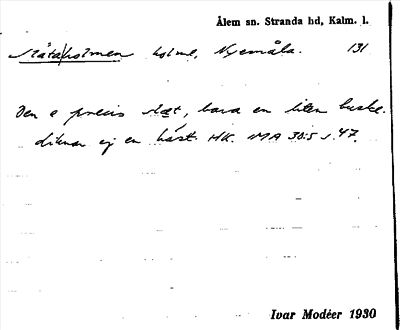 Ålem sn. Stranda hd, Kalm. l.
Slätaholmen holme, Nyemåla. 131
Den e precis slæt, bara en liten buske.
liknar ej en häst. HK. MA 38:5 s. 47.
Ivar Modéer 1930